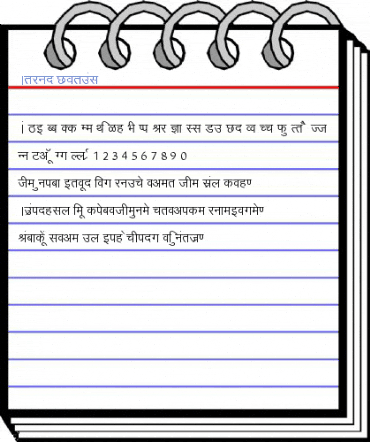 ।तरनद छवतउस
। ठइ ब्ब क्क ग्म थ ळिह भै प्प श्रर ज्ञा स्स डउ छद व्व च्च फु त्तै ज्ज
न्न टअॅू ग्ग ल्र्ल 1 2 3 4 5 6 7 8 9 0
जीम ुनपबा इतवूद विग रनउचे वअमत जीम संल कवहण
।उंपदहसल मिू कपेबवजीमुनमे चतवअपकम रनामइवगमेण
श्रंबाकूें सवअम उल इपह ेचीपदग वि ुनंतज्रण